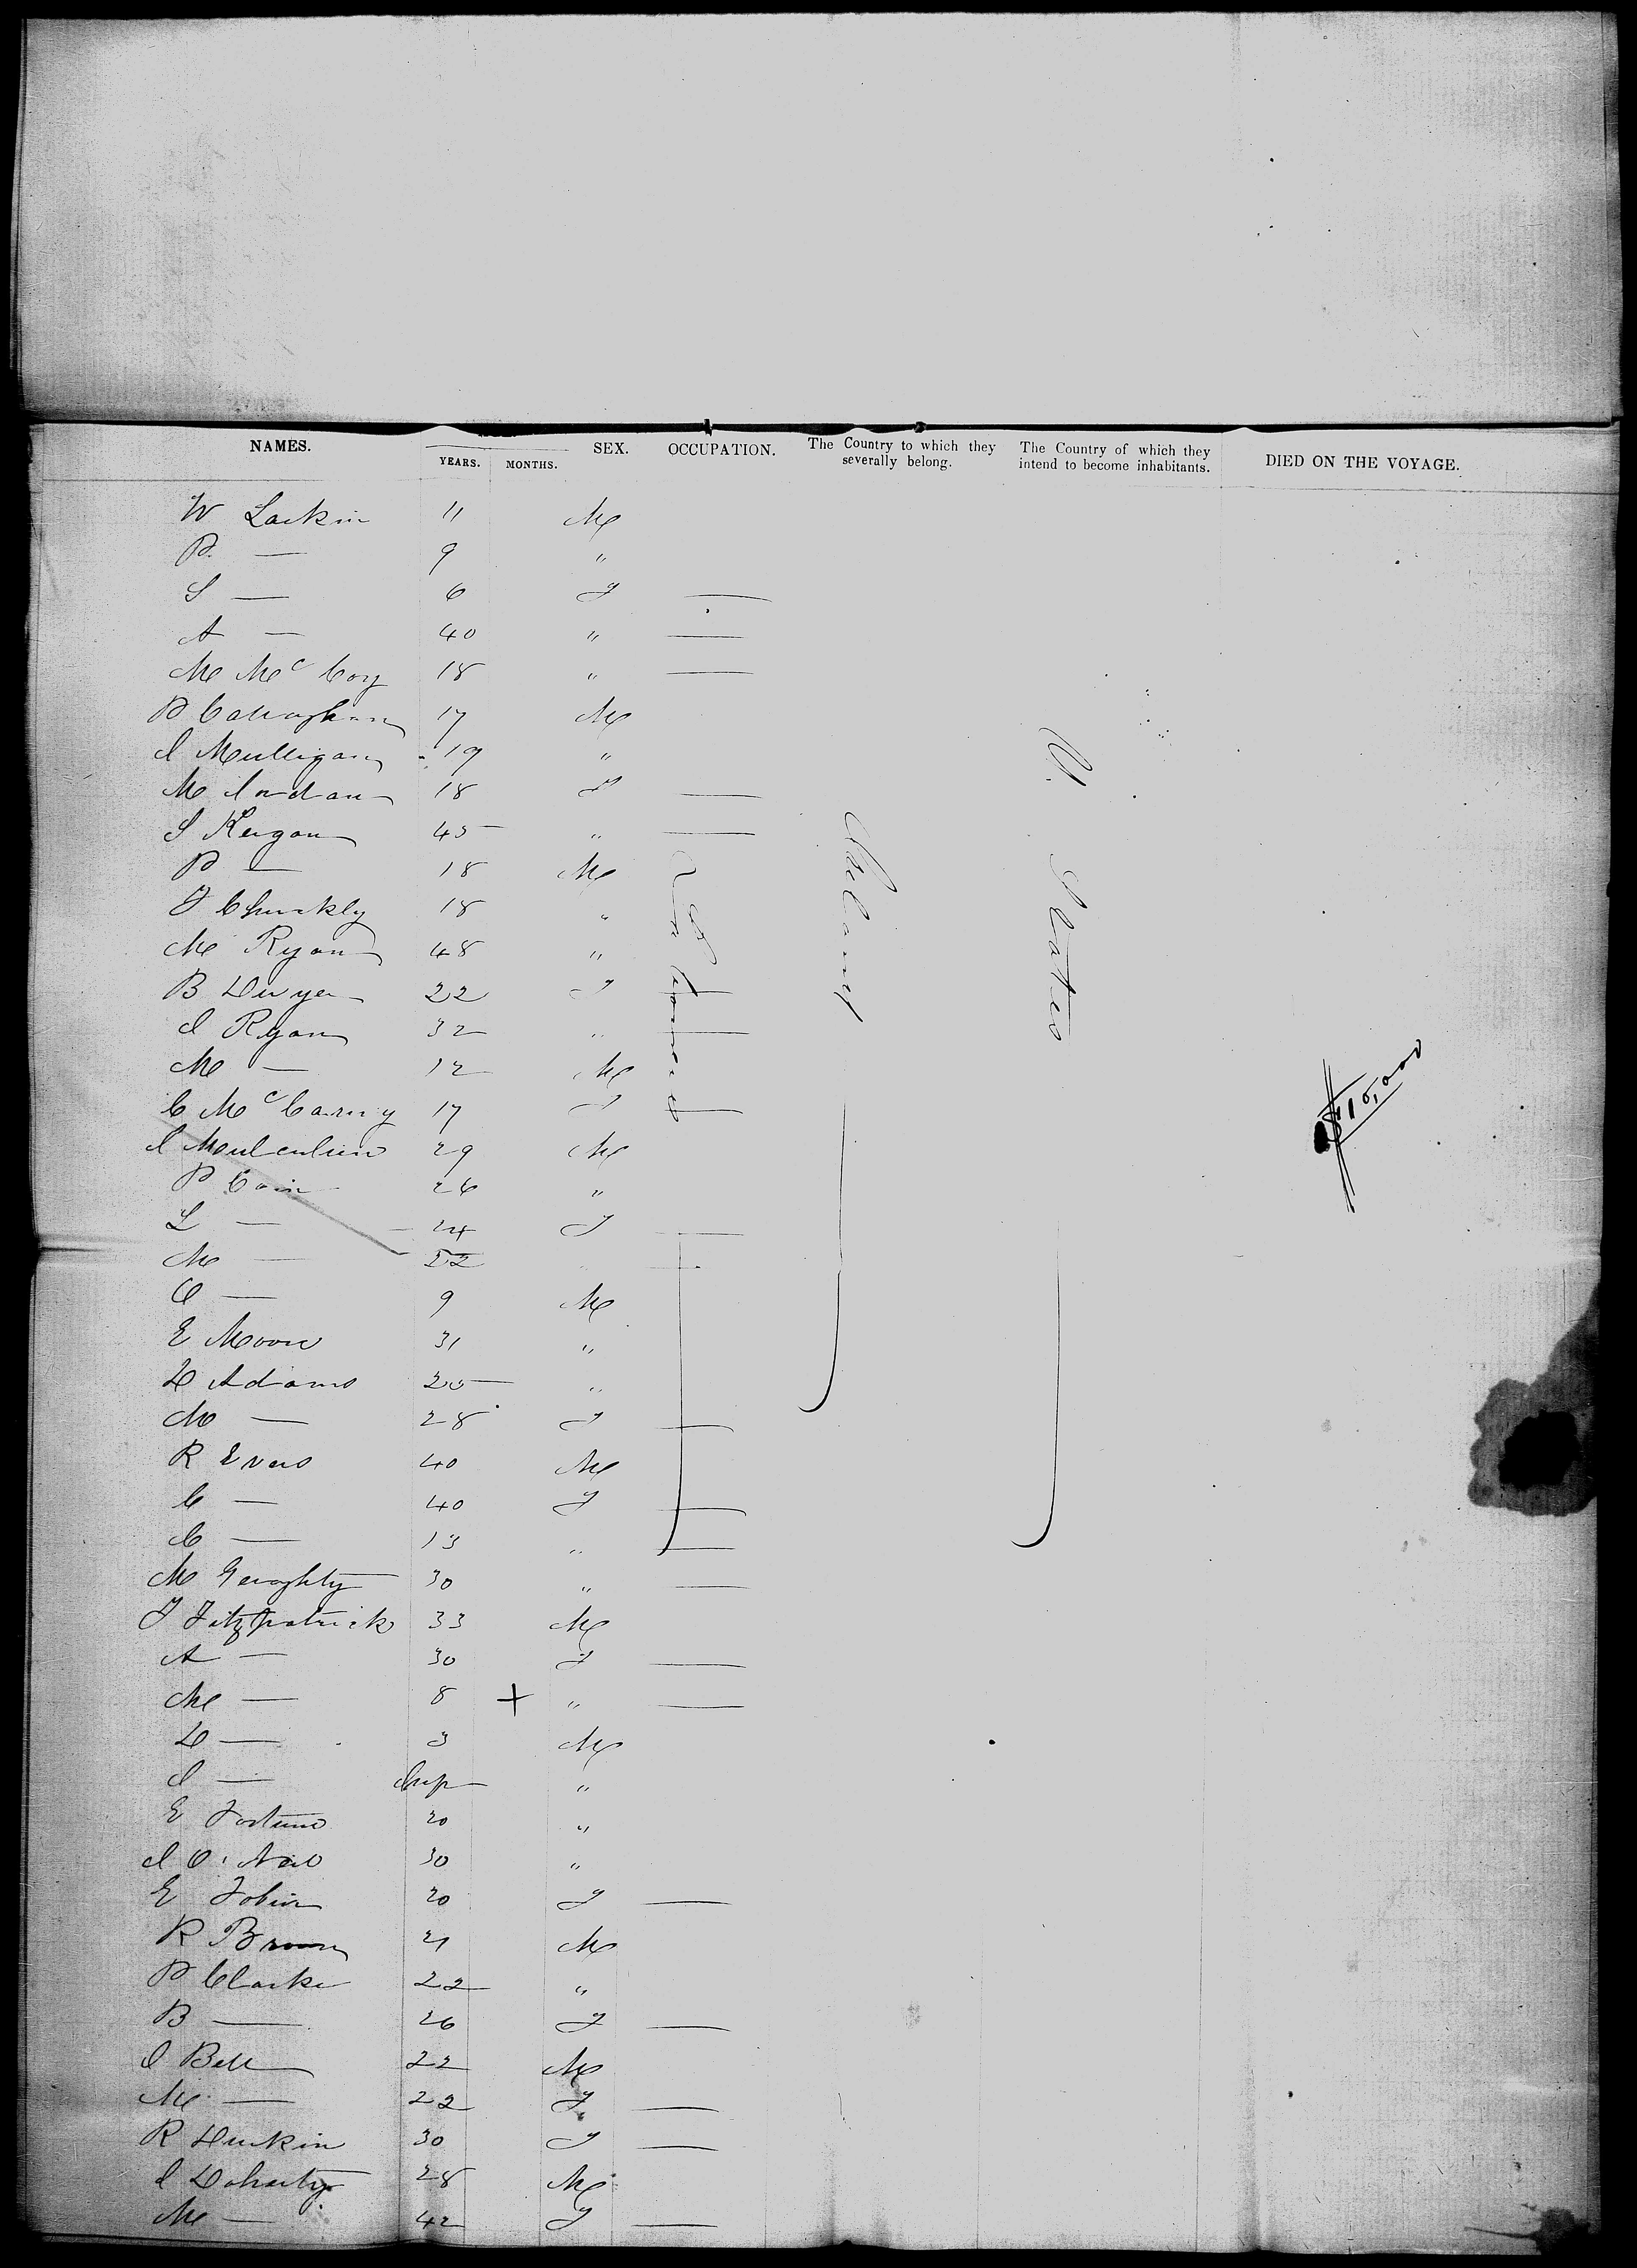 NAMES. YEARS. MONTHS. SEX. OCCUPATION. The Country to which they severally belong. The Country of which they intend to become inhabitants. DIED ON THE VOYAGE.
W Larkin 11 M
P. — 9 "
S — 6 F —
A — 40 " —
M Mc Coy 18 " —
P Callaghan 17 M
J Mulligan 19 "
M Jordan 18 F —
S Keegan 45 " —
P — 18 M
J 18 "
M Ryan 48 "
B Dwyer 22 F —
J Ryan 32 " —
M — 12 M
C Mc Carny 17 F —
J 29 M
P Cain 26 "
L — 24 F —
M — 22 " —
O — 9 M
E Moore 31 "
D Adams 25 "
M — 28 F —
R Evers 40 M
C — 40 F —
C — 13 " —
M Geraghty 30 " —
J Fitzpatrick 33 M
A — 30 F —
M — 8 + " —
D — 3 M
J — Inf "
E Fortune 20 "
J O'Neil 30 "
E Tobin 20 F —
R Brown 21 M
P Clarke 22 "
B — 26 F —
J Bell 22 M
M — 22 F —
R Durkin 30 F —
J Doherty 28 M
M — 42 F —
Labourers
Ireland
U. States
$15,000